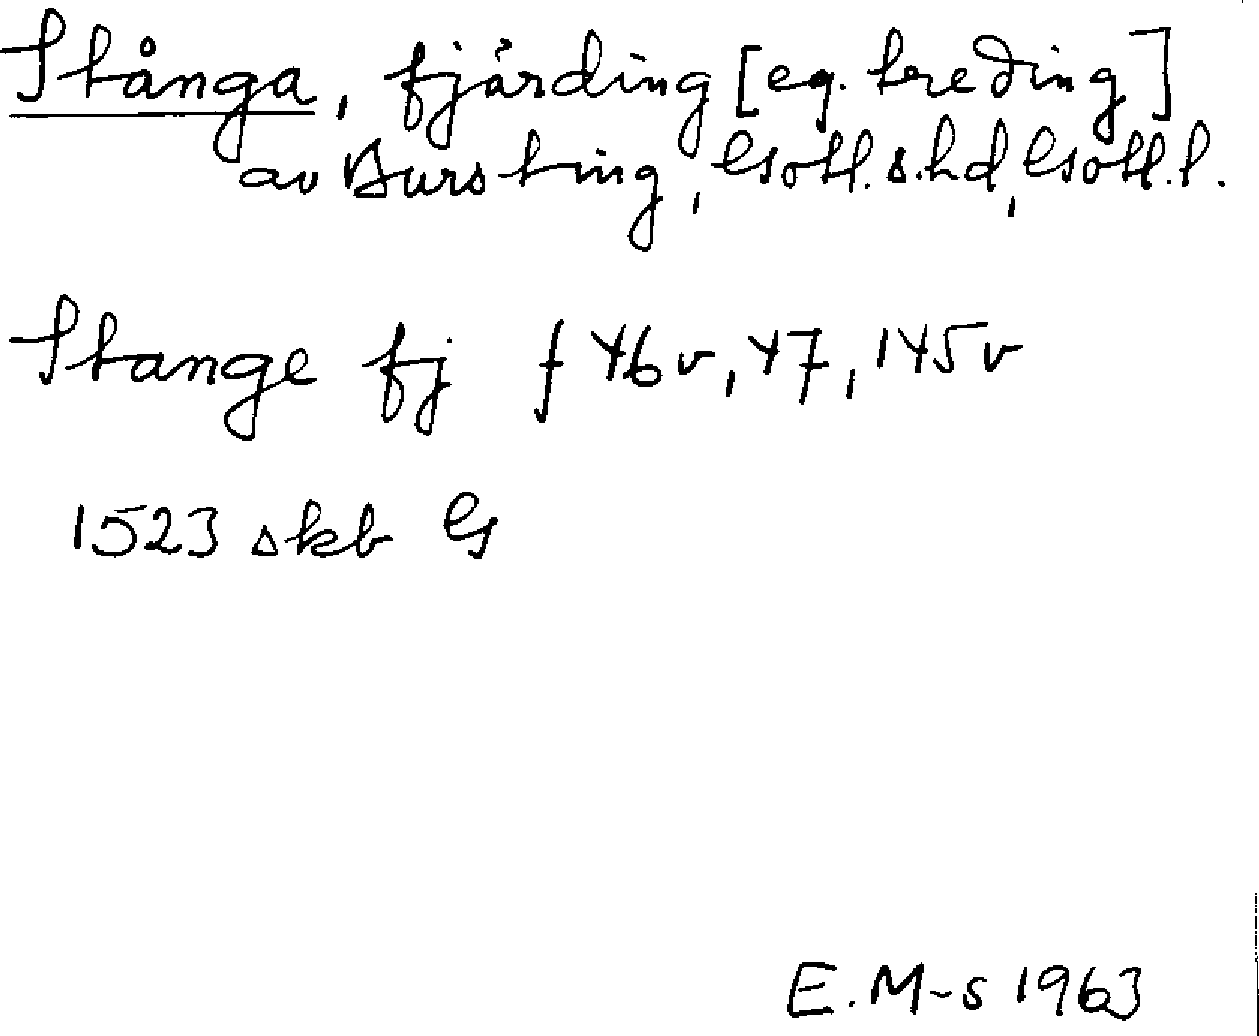 Stånga, fjärding [eg. treding]
av Burs ting, Gotl. s. hd, Gotl. l.
Stange fj f 46v, 47, 145v
1523 skb G
E. M-s 1963